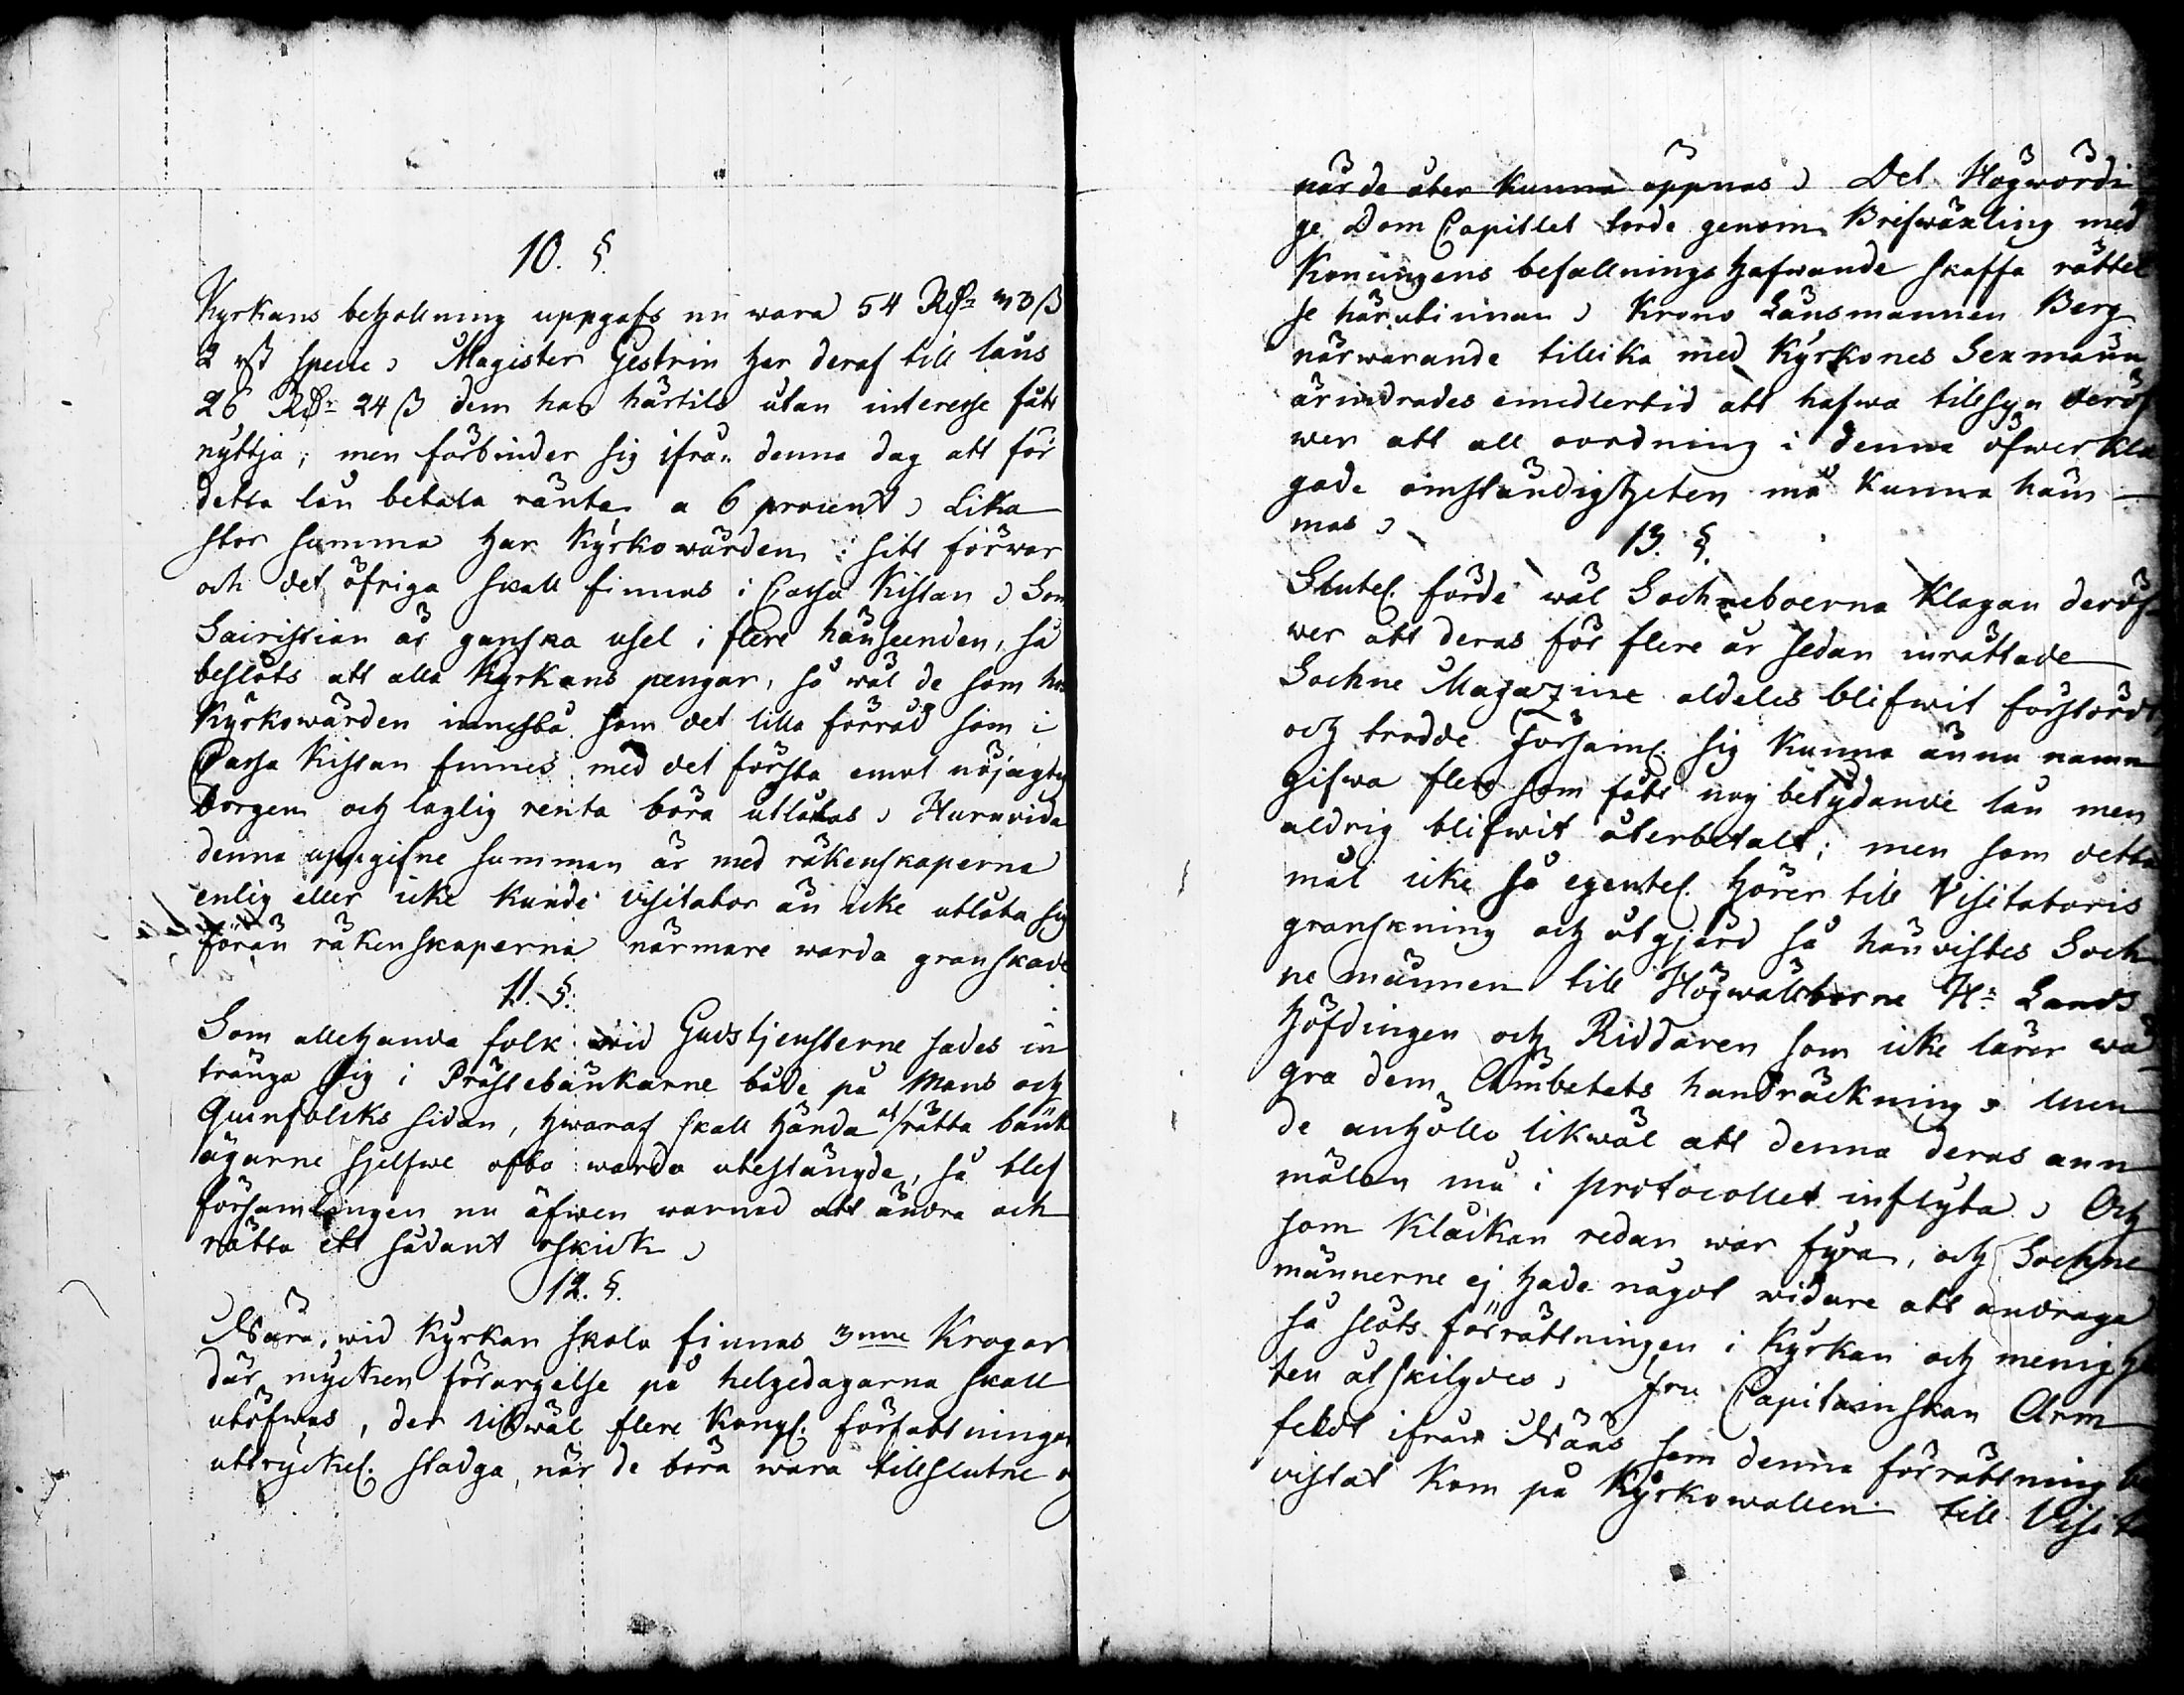 10. §.
Kyrkans behållning uppgafs nu wara 54 Rdr
2 specie. Magister Gestrin har deraf till låns
26 Rdr 24 ß dem han härtils utan interesse fått
nyttja; men förbinder sig ifrån denna dag att för
detta lån betala ränta a 6 procent. Lika
stor summa har Kyrkowärden i sitt förwar
och det öfriga skall finnas i Cassa Kistan. Som
Sacristian är ganska usel i flere hänseenden, så
beslöts att alla Kyrkans pengar, så wäl de som hos
Kyrkowärden innestå som det lilla förråd som i
Cassa Kistan finnes med det första emot nöjagtig
borgen och laglig renta böra utlånas. Huruvida
denna uppgifne summan är med räkenskaperna
enlig eller icke kunde visitator än icke utlåta sig
förän räkenskaperna närmare warda granskade
11. §.
Som allehanda folk wid Gudstjensterne sades in
tränga sig i Prästebänkarne både på Mans och
Quinfolcks sidan, hwaraf skall hända at rätta bänk
ägarne sjelfwe ofta warda utestängde, så blef
församlingen nu äfwen warnad att ändra och
rätta ett sådant oskick.
12. §.
Nära wid Kyrkan skola finnas 3nne Krogar
där mycken förargelse på helgedagarna skall
utöfwas, der likwäl flere Kongl. författningar
uttryckel. stadga, när de böra wara tillslutne och
när de åter kunna öppnas. Det Högwördi
ge Dom Capitlet torde genom Brefwäxling med
Konungens befallningshafwande skaffa rättel
se härutinnan. Krono Länsmannen Berg
närwarande tillika med Kyrkones Sexmänn
ärindrades emedlertid att hafwa tillsyn deröf
wer att all oordning i denna öfwerkla
gade omständigheten må kunna häm
mas.
13. §.
Slutel. förde wäl Sochneboerna klagan deröf
wer att deras för flere år sedan inrättade
Sochne Magazine aldeles blifwit förstördt,
och trodde Församl. sig kunna ännu namn
gifwa flere som fått nog betydande lån men
aldrig blifwit återbetalt; men som detta
mål icke så egentel. hörer till Visitatoris
granskning och åtgjärd så hänvistes Soch
ne männen till Högwälborne Hr Lands
höfdingen och Riddaren som icke lärer wä
gra dem Ämbetets handräckning, men
de anhöllo likwäl att denna deras ann
mälan må i protocollet inflyta. Och
som Kläckan redan war fyra, och Sochne
männerne ej hade något widare att andraga
så slöts förrättningen i Kyrkan och menighe
ten åtskilgdes. Fru Capitainskan Arm
feldt ifrån Näas som denna förrättning bi
vistat kom på Kyrkowallen till Visita